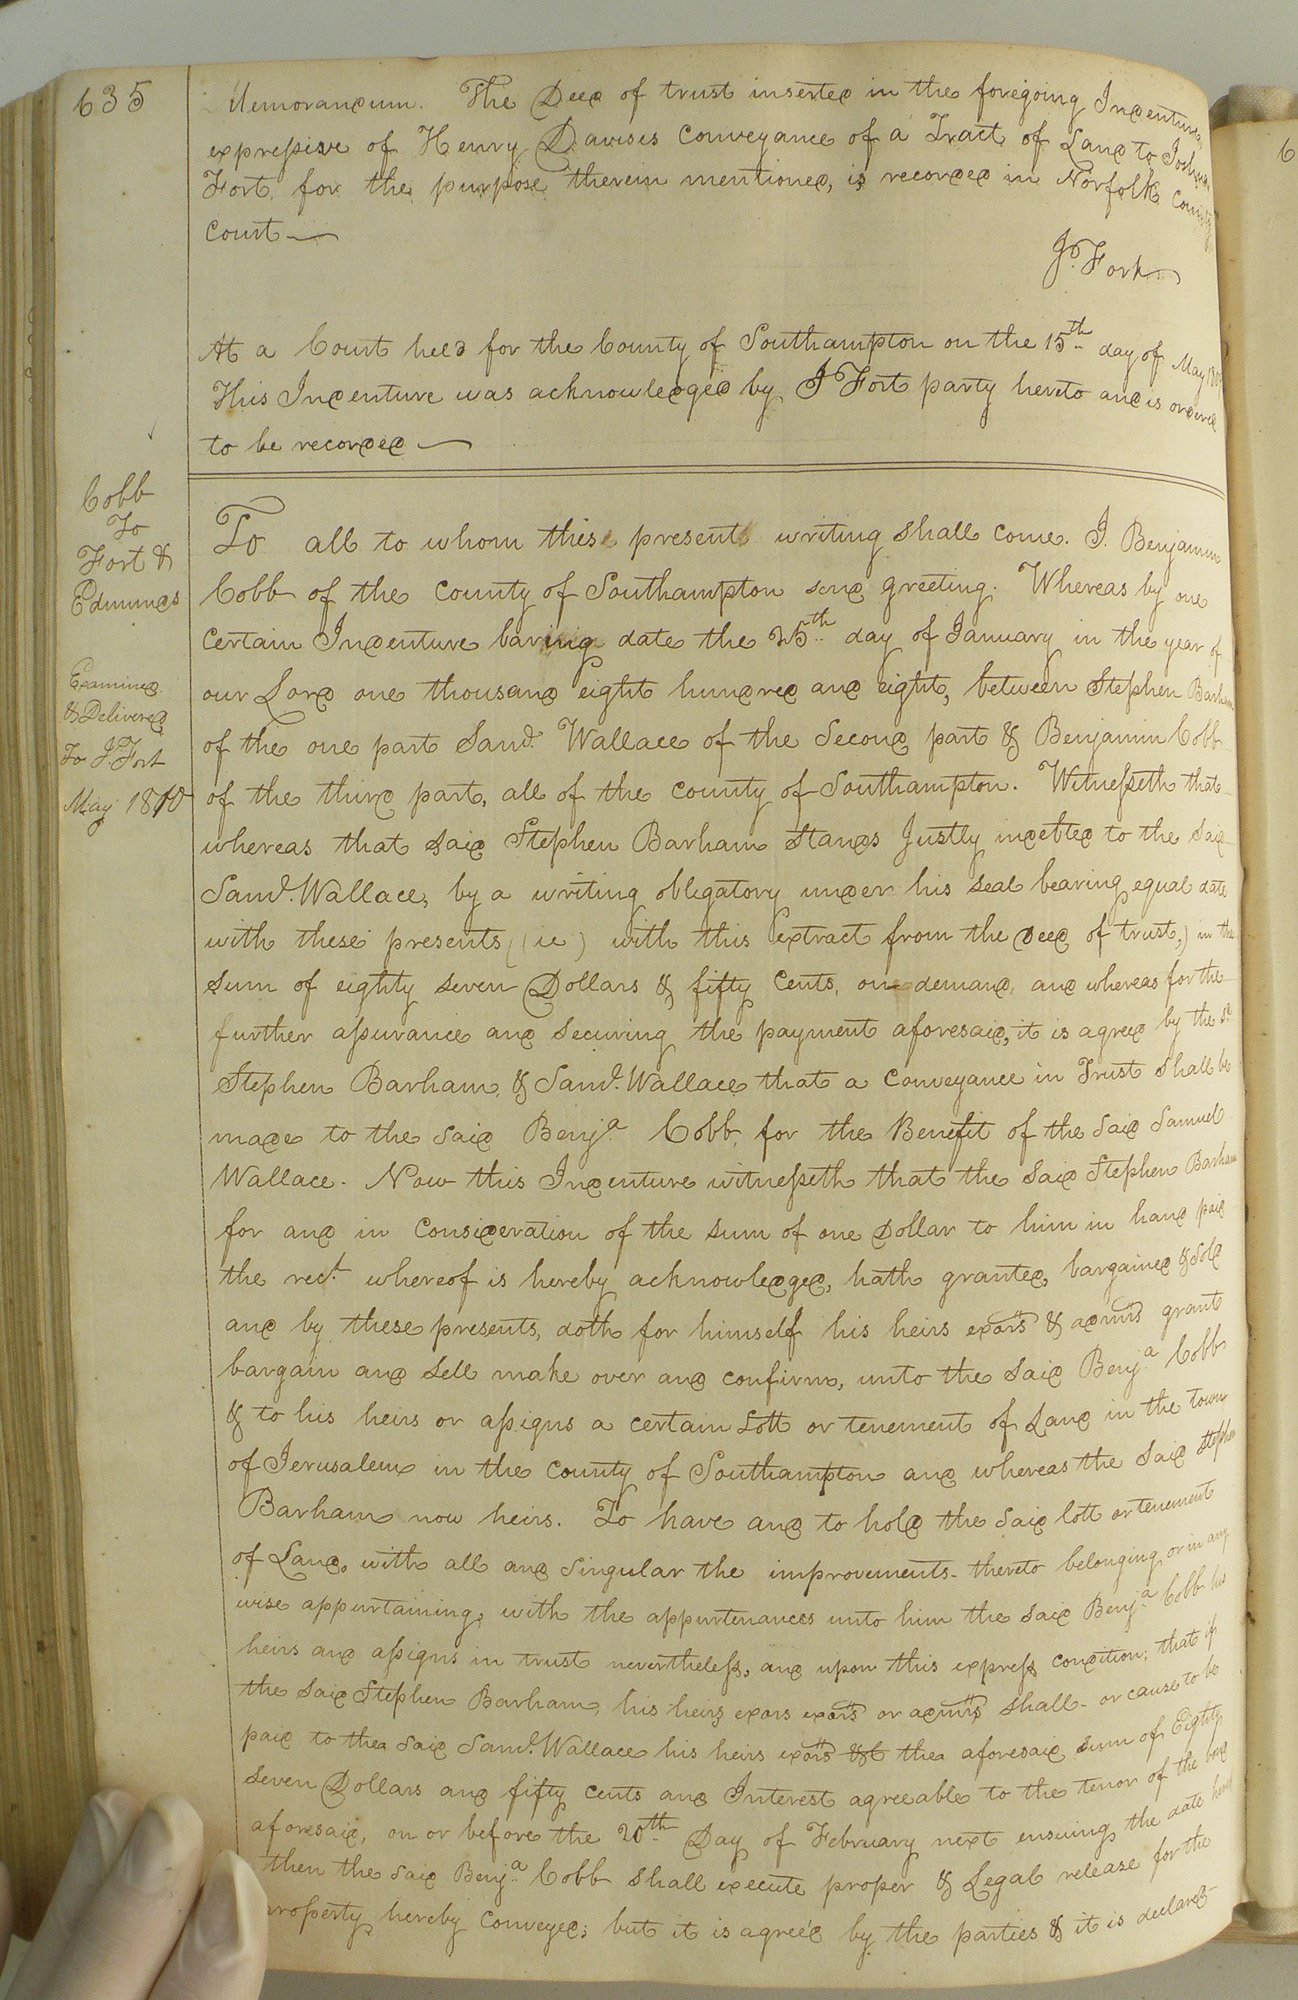 635
Memorandum. The Deed of trust inserted in the foregoing Indenture
expressive of Henry Davises Conveyance of a Tract of Land to Joshua
Fort, for the purpose therein mentioned, is recorded in Norfolk County
Court
J. Fort
At a Court held for the County of Southampton on the 15th day of May
This Indenture was acknowledged by J Fort party hereto and is ordered
to be recorded
Cobb
To
Fort &
Edmunds
Examined
& Delivered
To J. Fort
May 1810
To all to whom this present writing shall come. I. Benjamin
Cobb of the County of Southampton send greeting. Whereas by one
certain Indenture baring date the 25th day of January in the year of
our Lord one thousand eight hundred and eight, between Stephen Barham
of the one part Saml. Wallace of the Second part & Benjamin Cobb
of the third part, all of the county of Southampton. Witnesseth that
whereas that said Stephen Barham Stands Justly indebted to the said
Saml. Wallace, by a writing obligatory under his seal bearing equal date
with these presents ((ie) with this extract from the Deed of trust,) in the
sum of eighty seven Dollars & fifty Cents, on demand, and whereas for the
further assurance and Securing the payment aforesaid, it is agreed by the sd
Stephen Barham, & Saml. Wallace that a Conveyance in Trust shall be
made to the said Benja. Cobb, for the Benefit of the said Samuel
Wallace. Now this Indenture witnesseth that the Said Stephen Barham
for and in Consideration of the sum of one Dollar to him in hand paid
the rect. whereof is hereby acknowledged, hath granted, bargained & sold
and by these presents, doth for himself his heirs exors & admrs grant
bargain and sell make over and confirm, unto the said Benja. Cobb
& to his heirs or assigns a certain Lott or tenement of Land in the town
of Jerusalem in the County of Southampton and whereas the said Stephen
Barham now heirs. To have and to hold the said lott or tenement
of Land, with all and singular the improvements thereto belonging or in any
wise appurtaining, with the appurtenances unto him the said Benja. Cobb his
heirs and assigns in trust nevertheless, and upon this express condition; that if
the said Stephen Barham, his heirs exors exors or admrs shall or cause to be
paid to the said Saml. Wallace his heirs exors &c the aforesaid sum of Eighty
seven Dollars and fifty cents and Interest agreeable to the tenor of the bond
aforesaid, on or before the 20th Day of February next ensuing the date hereof
then the said Benja. Cobb shall execute proper & Legal release for the
property hereby Conveyed; but it is agree'd by the parties & it is declared